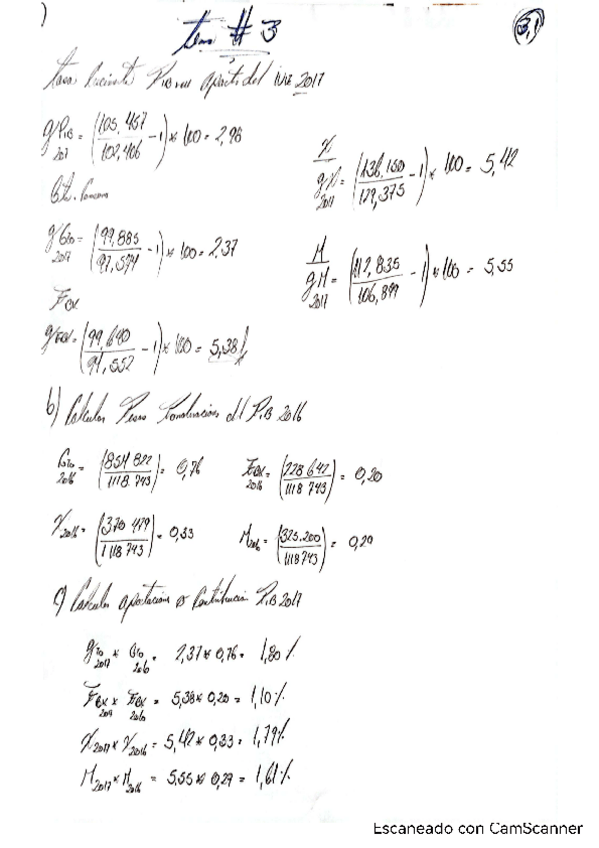 )
tem # 3
3,1
Tasa Creciente PIB vu apartir del IVE 2017
gPIB 2017 = (105,467 / 102,406 - 1) * 100 = 2,98
Gto. Consumo
gGto 2017 = (99,885 / 97,574 - 1) * 100 = 2,37
FBK
gFBK = (99,640 / 94,552 - 1) * 100 = 5,38%
X
gX 2017 = (136,160 / 129,375 - 1) * 100 = 5,42
M
gM 2017 = (112,835 / 106,899 - 1) * 100 = 5,55
b) Calculos Pesos Ponderaciones del PIB 2016
Gto 2016 = (854 822 / 1118 743) = 0,76
FBK 2016 = (228 642 / 1118 743) = 0,20
X 2016 = (370 479 / 1118 743) = 0,33
M 2016 = (325.200 / 1118 743) = 0,29
c) Calculos aportaciones o Contribucion PIB 2017
gto 2017 * Gto 2016 = 2,37 * 0,76 = 1,80 %
FBK 2017 * FBK 2016 = 5,38 * 0,20 = 1,10 %
X 2017 * X 2016 = 5,42 * 0,33 = 1,79 %
M 2017 * M 2016 = 5,55 * 0,29 = 1,61 %
Escaneado con CamScanner